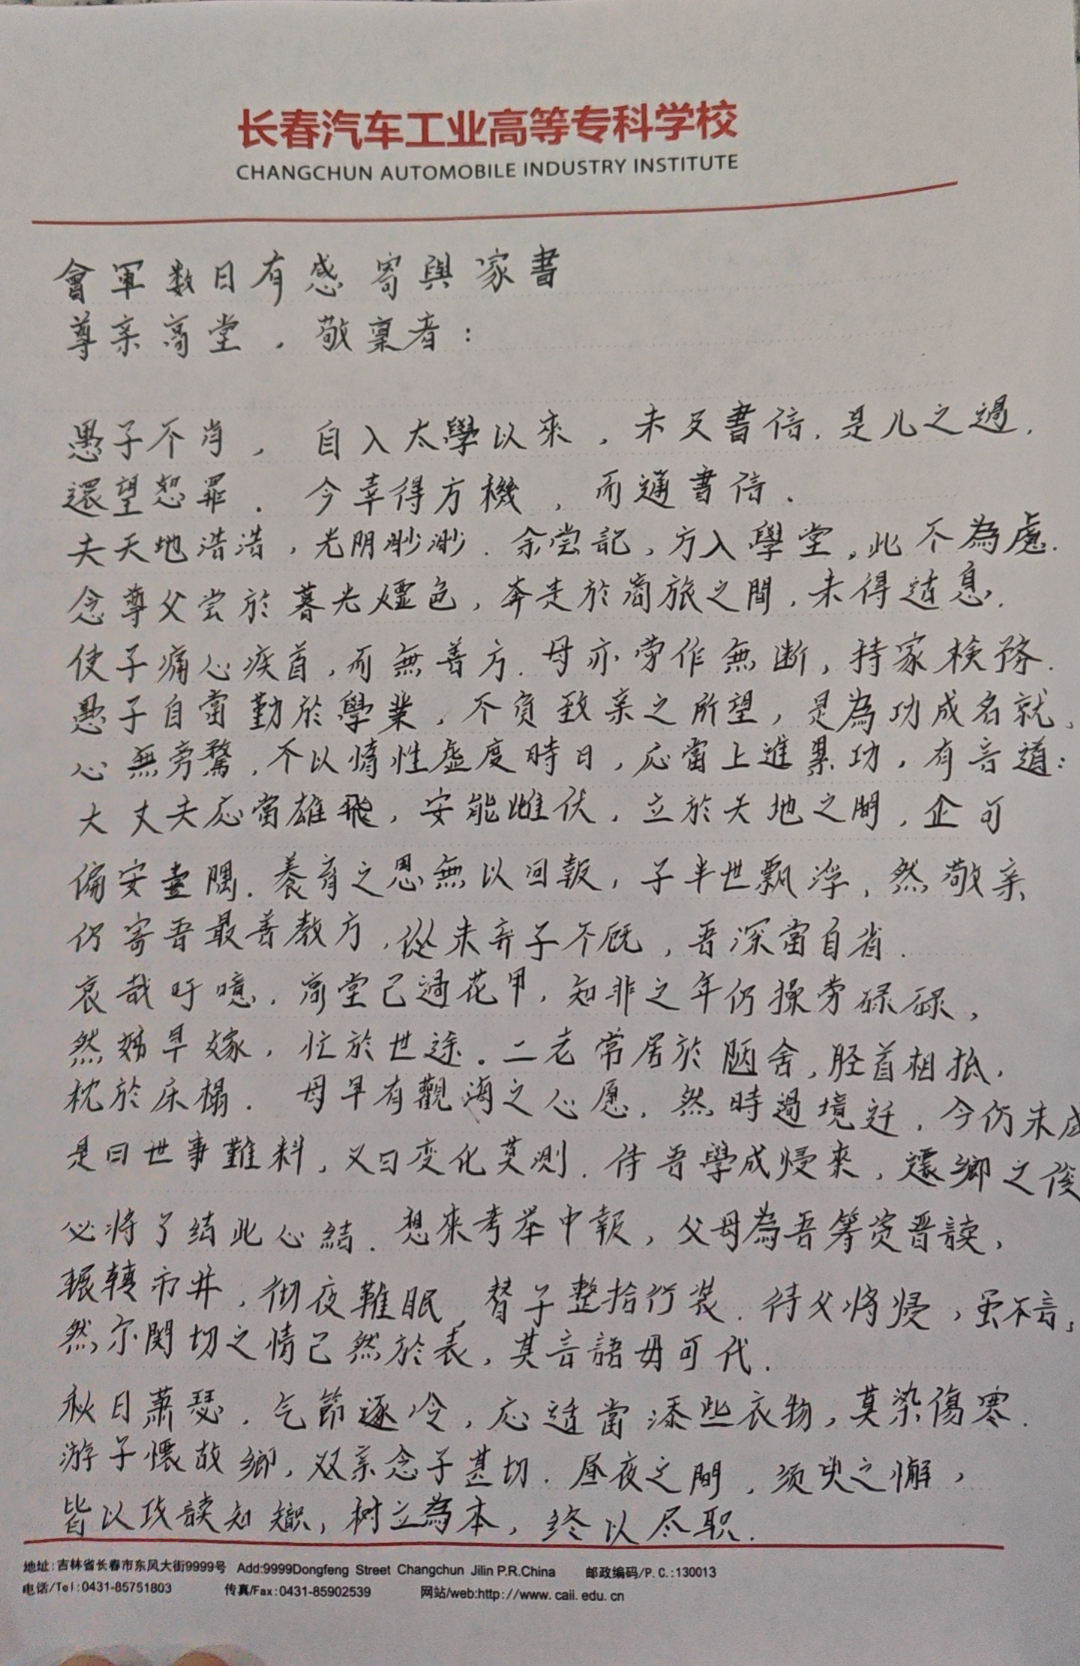 长春汽车工业高等专科学校
CHANGCHUN AUTOMOBILE INDUSTRY INSTITUTE
會軍数日有感 寄與家書
尊亲高堂，敬稟者：
愚子不肖， 自入太學以來，未及書信，是儿之過，
還望恕罪． 今幸得方機，而通書信．
夫天地浩浩，光阴眇渺．余尝記，方入學堂，此不為處．
念尊父尝於暮光爐色，奔走於商旅之間，未得适息．
使子痛心疾首，而無善方．母亦劳作無断，持家検務．
愚子自當勤於學業，不负致亲之所望，是為功成名就，
心無旁騖，不以惰性虚度時日，応當上進累功，有言道：
大丈夫応當雄飛，安能雌伏，立於天地之間，企可
偏安壹隅．養育之恩無以回報，子半世飘浮，然敬亲
仍寄吾最善教方，從未弃子不既，吾深當自省．
哀哉吁噫，高堂已過花甲，知非之年仍操劳碌碌，
然姊早嫁，忙於世途．二老常居於陋舍，胫首相抵，
枕於床榻． 母早有觀海之心愿，然時過境迁，今仍未成
是曰世事難料，又曰变化莫測．待吾學成归来，還鄉之後
必将了结此心結．想來考举中報，父母為吾筹资晋读，
輾轉市井，彻夜難眠，替子整拾行装．待父将归，虽不言，
然尔関切之情已然於表，其言語毋可代．
秋日萧瑟，气節逐冷，応适當添些衣物，莫染傷寒．
游子懷故鄉，双亲念子甚切．昼夜之間，须臾之懈，
皆以攻読知識，树立為本，终以尽职．
地址:吉林省长春市东风大街9999号 Add:9999Dongfeng Street Changchun Jilin P.R.China 邮政编码/P.C.:130013
电话/Tel:0431-85751803 传真/Fax:0431-85902539 网站/web:http://www.caii.edu.cn